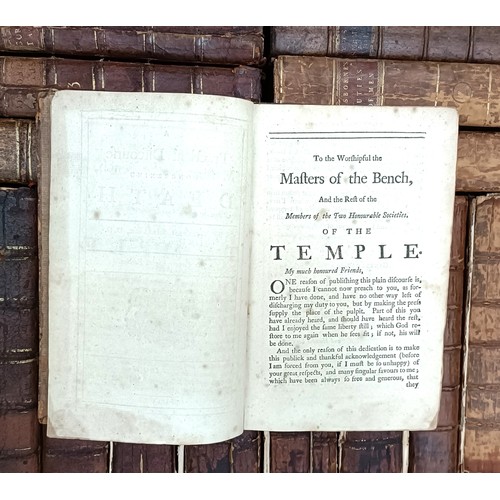 OSBORNE'S
DUTIES
OF MEN
To the Worſhipful the
Maſters of the Bench,
And the Reſt of the
Members of the Two Honourable Societies,
OF THE
TEMPLE.
My much honured Friends,
ONE reaſon of publiſhing this plain diſcourſe is,
becauſe I cannot now preach to you, as for-
merly I have done, and have no other way left of
diſcharging my duty to you, but by making the preſs
ſupply the place of the pulpit. Part of this you
have already heard, and ſhould have heard the reſt,
had I enjoyed the ſame liberty ſtill; which God re-
ſtore to me again when he ſees fit; if not, his will
be done.
And the only reaſon of this dedication is to make
this publick and thankful acknowledgement (before
I am forced from you, if I muſt be ſo unhappy) of
your great reſpects, and many ſingular favours to me;
which have been always ſo free and generous, that
they